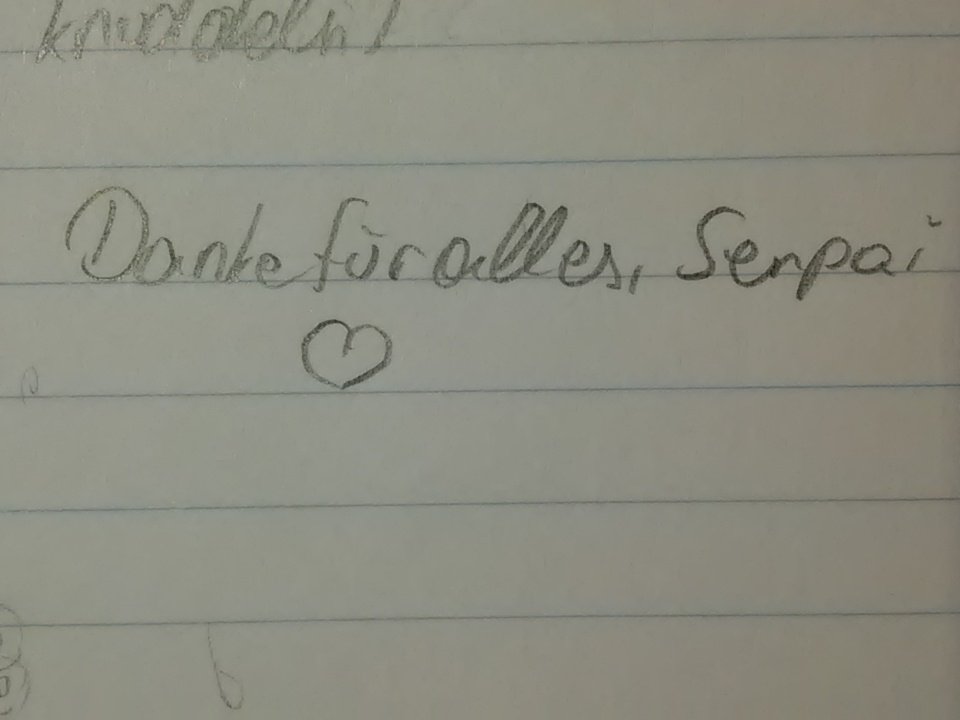 knuddeln!
Danke für alles, Senpai
♡